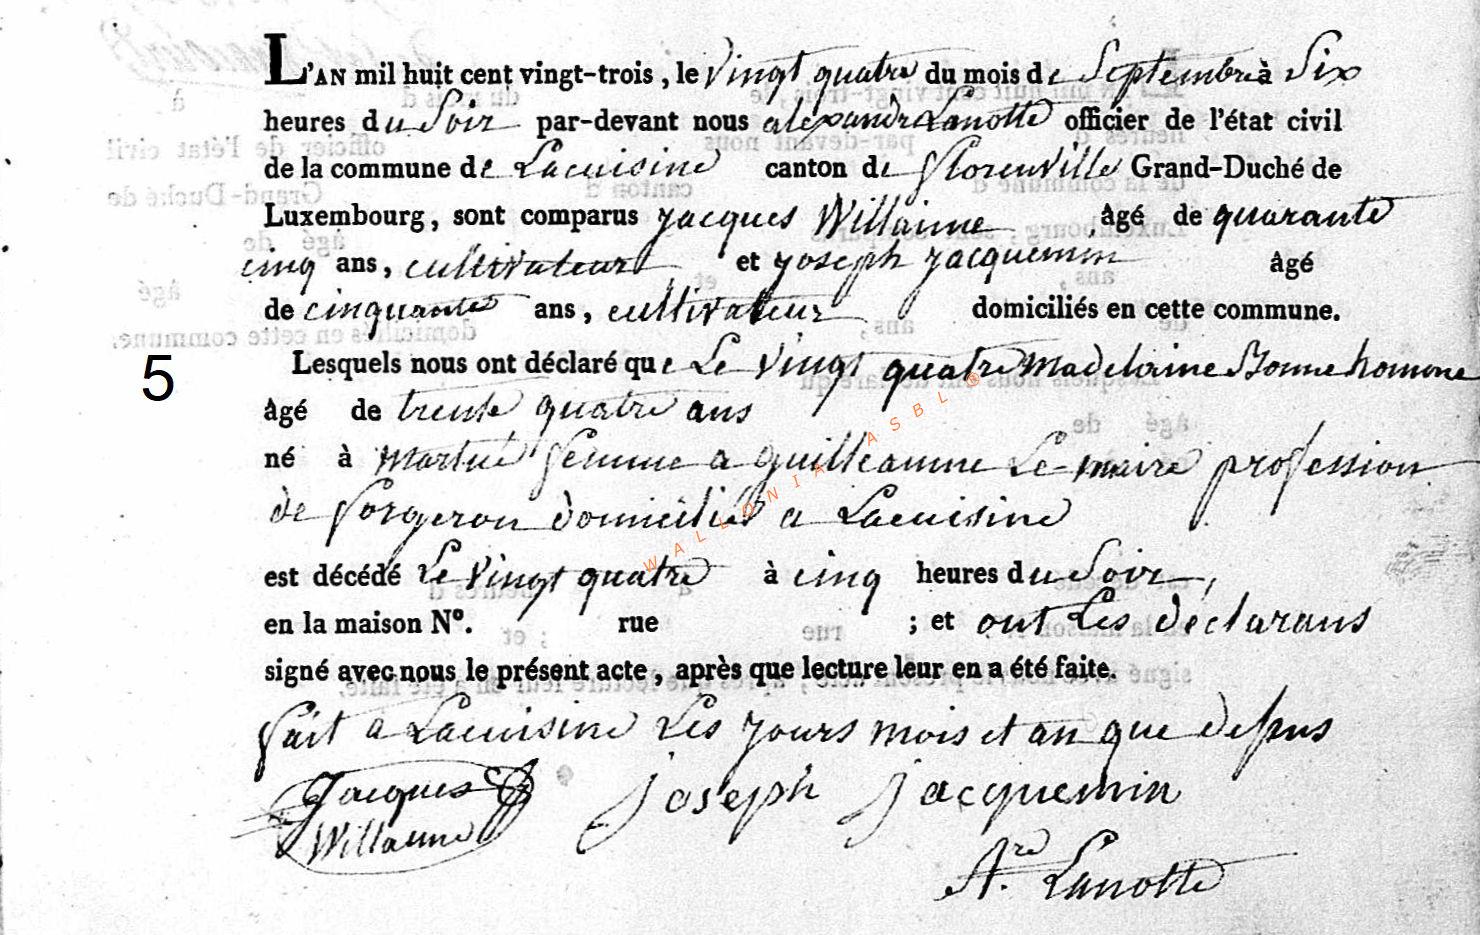 L'AN mil huit cent vingt-trois, le vingt quatre du mois de Septembre à Six
heures du Soir par-devant nous alexandre Lanotte officier de l'état civil
de la commune de Lacuisine canton de florenville Grand-Duché de
Luxembourg, sont comparus jacques Willaime âgé de quarante
cinq ans, cultivateur et joseph jacquemin âgé
de cinquante ans, cultivateur domiciliés en cette commune.
5
Lesquels nous ont déclaré que Le vingt quatre Madelaine Bonnehomme
âgé de trente quatre ans
né à Martué femme a guilleaume Le-maire profession
de forgeron domicilié a Lacuisine
est décédé Le vingt quatre à cinq heures du Soir,
en la maison N°. rue ; et ont Les déclarans
signé avec nous le présent acte, après que lecture leur en a été faite.
fait a Lacuisine Les jours mois et an que dessus
Jacques joseph jacquemin
Willaume
A.re Lanotte
WALLONIA ASBL ®